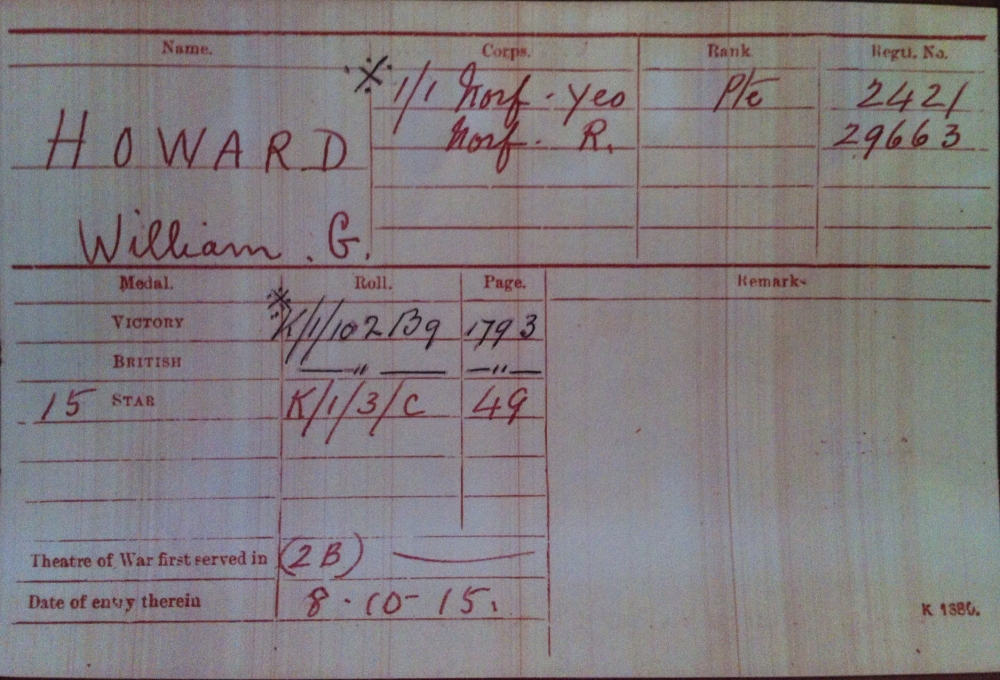 Name. Corps. Rank Regtl. No.
※ 1/1 Norf. Yeo Pte 2421
HOWARD Norf. R. 29663
William. G.
Medal. Roll. Page. Remarks
VICTORY ※ K/1/102 B9 1793
BRITISH —〃— —〃—
15 STAR K/1/3/C 49
Theatre of War first served in (2B)
Date of entry therein 8-10-15.
K 1380.